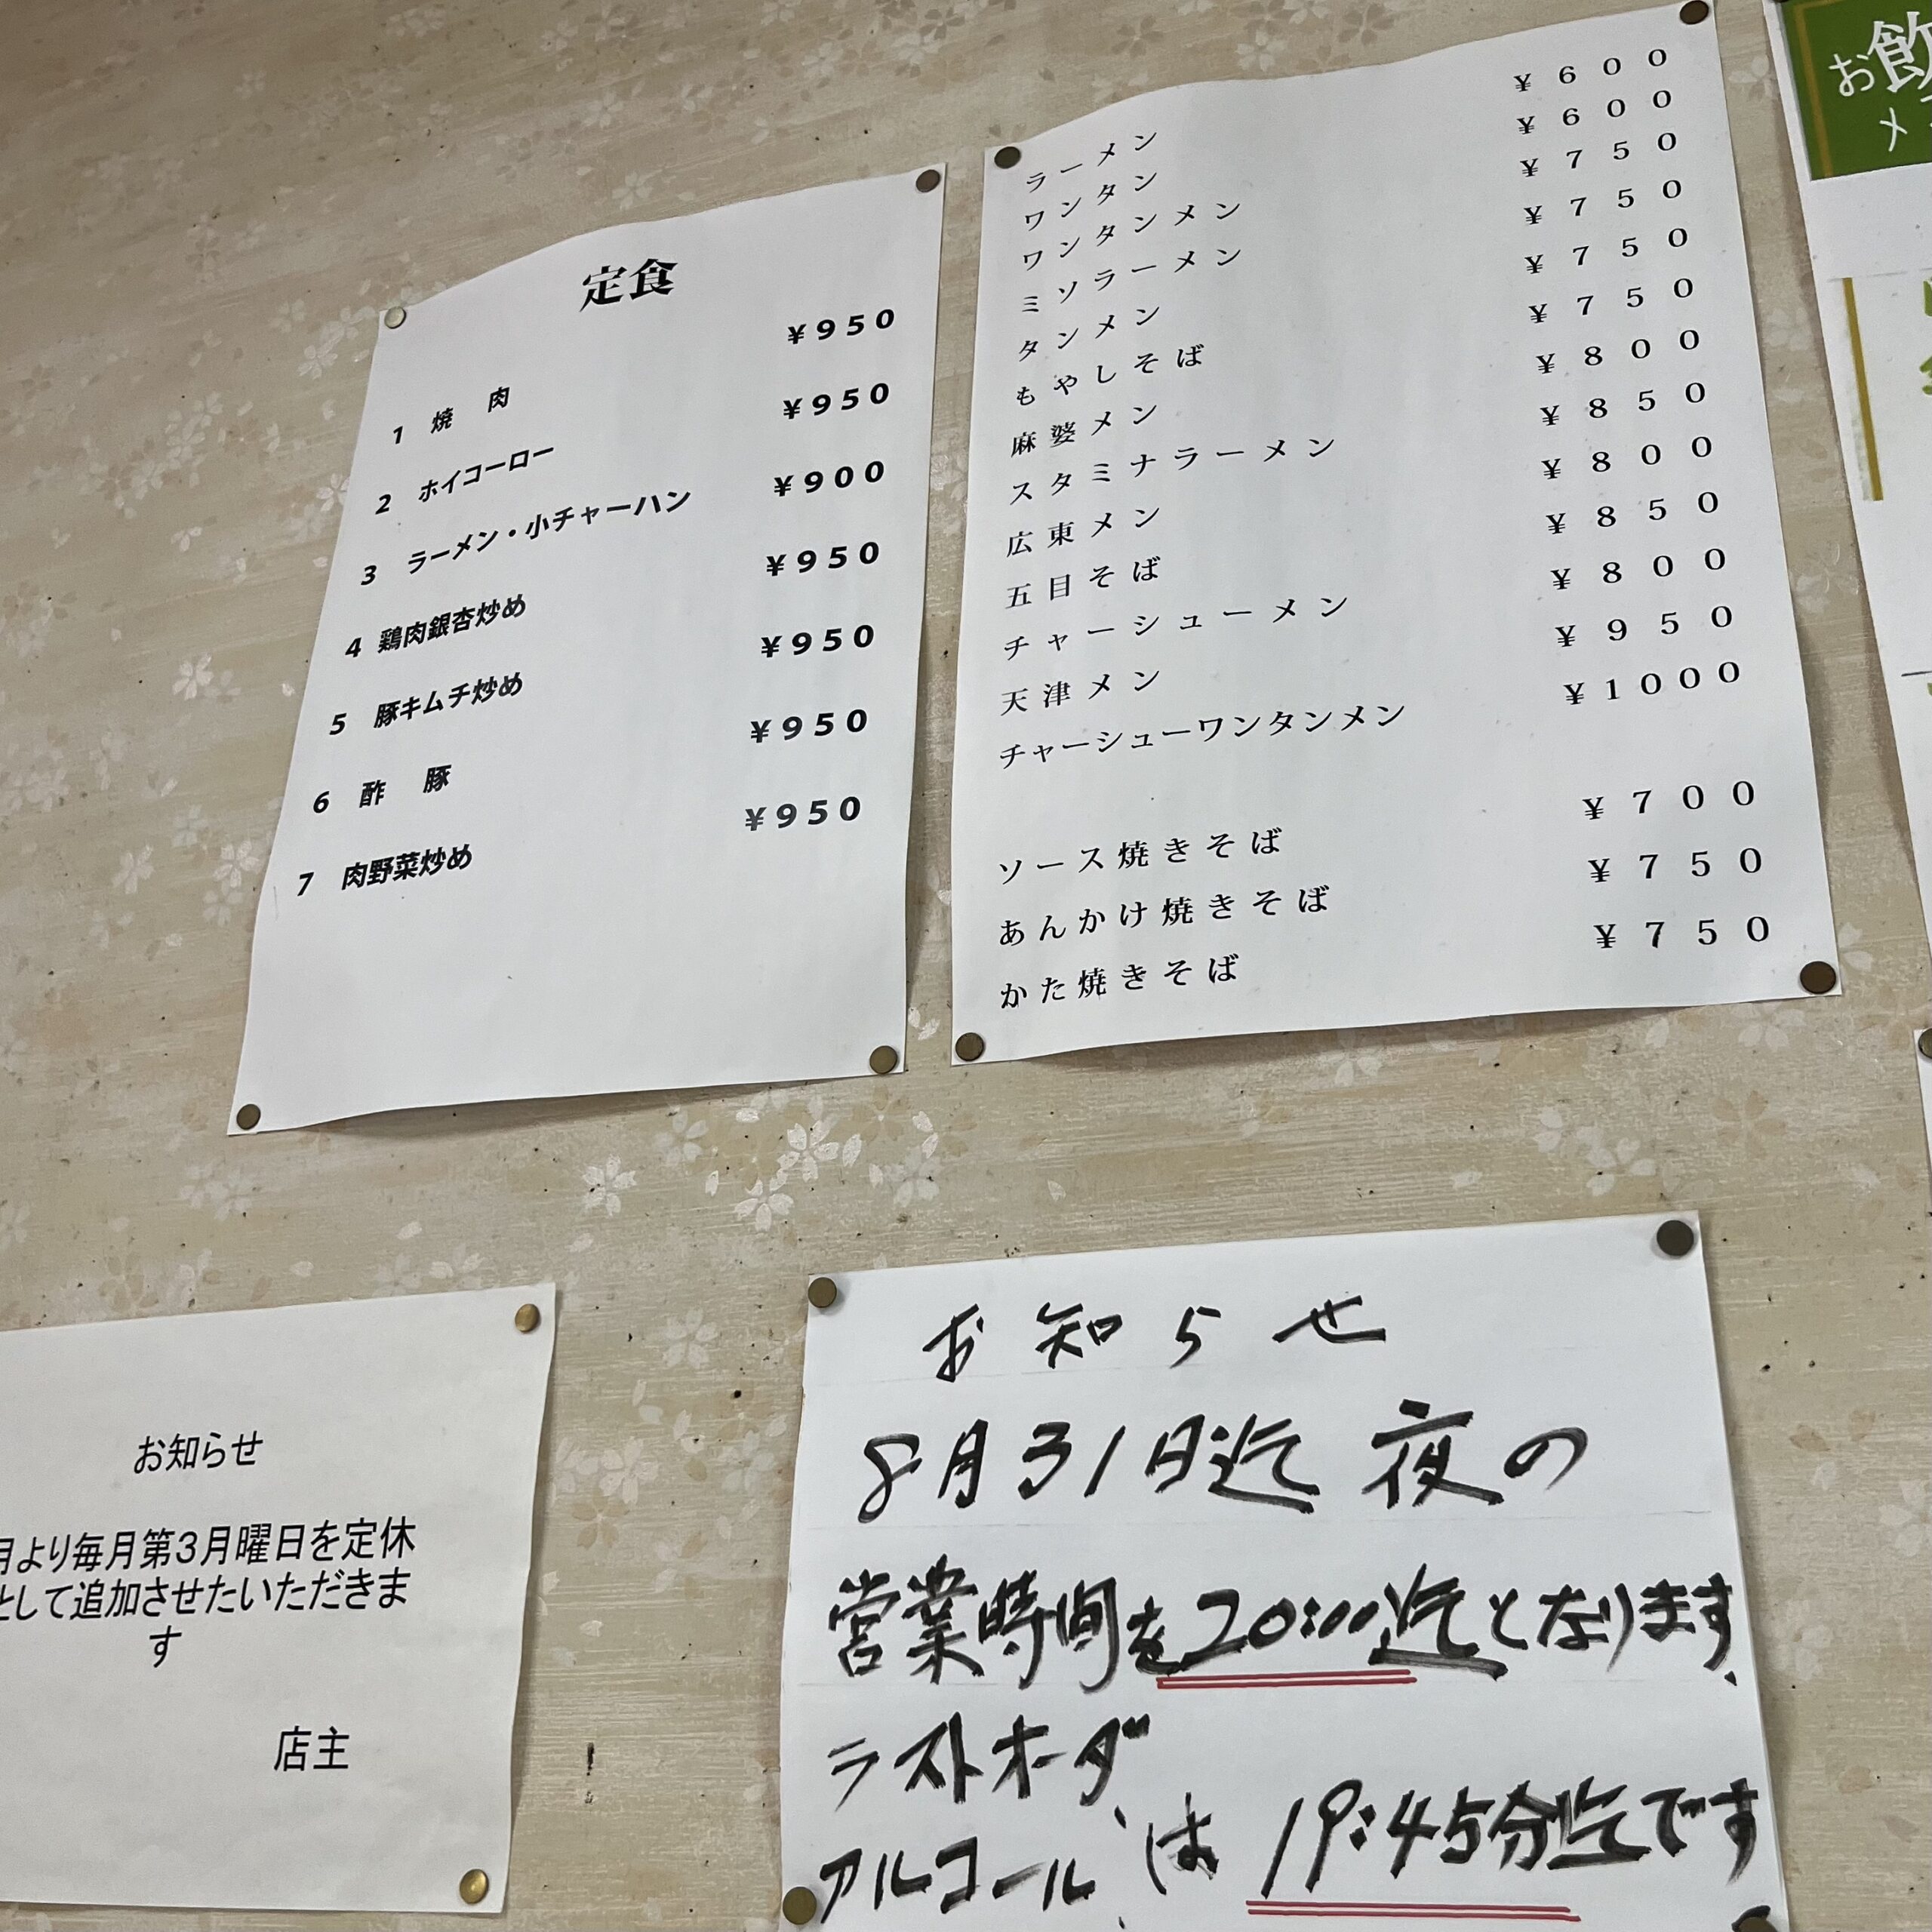 定食
1 焼 肉 ¥950
2 ホイコーロー ¥950
3 ラーメン・小チャーハン ¥900
4 鶏肉銀杏炒め ¥950
5 豚キムチ炒め ¥950
6 酢 豚 ¥950
7 肉野菜炒め ¥950
ラーメン ¥600
ワンタン ¥600
ワンタンメン ¥750
ミソラーメン ¥750
タンメン ¥750
もやしそば ¥750
麻婆メン ¥800
スタミナラーメン ¥850
広東メン ¥800
五目そば ¥850
チャーシューメン ¥800
天津メン ¥950
チャーシューワンタンメン ¥1000
ソース焼きそば ¥700
あんかけ焼きそば ¥750
かた焼きそば ¥750
お飲
メ
お知らせ
月より毎月第3月曜日を定休
として追加させたいただきま
す
店主
お知らせ
8月31日迄 夜の
営業時間を20:00迄となります、
ラストオーダ
アルコール、は 19:45分迄です